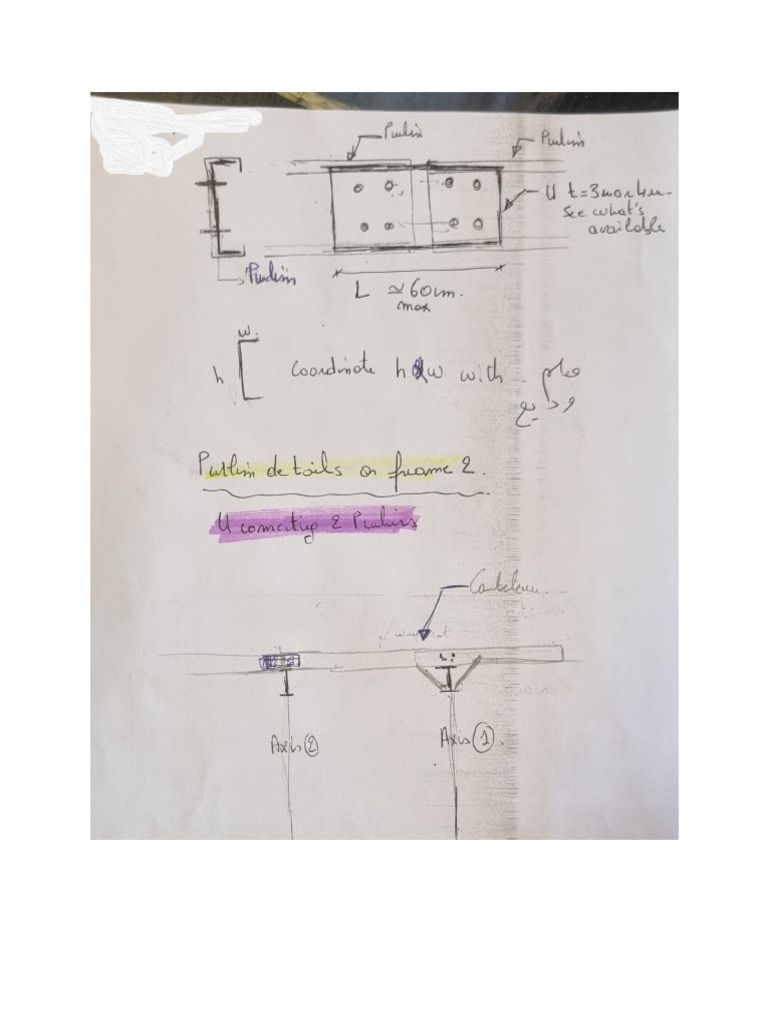 Purlin
Purlin
U t=3mm or 4mm
See what's
available
Purlin
L ≃ 60cm.
max
w.
h
Coordinate h & w. with
وديع
Purlin details on frame 2.
U connecting 2 Purlins
Axis ②
Axis ①.